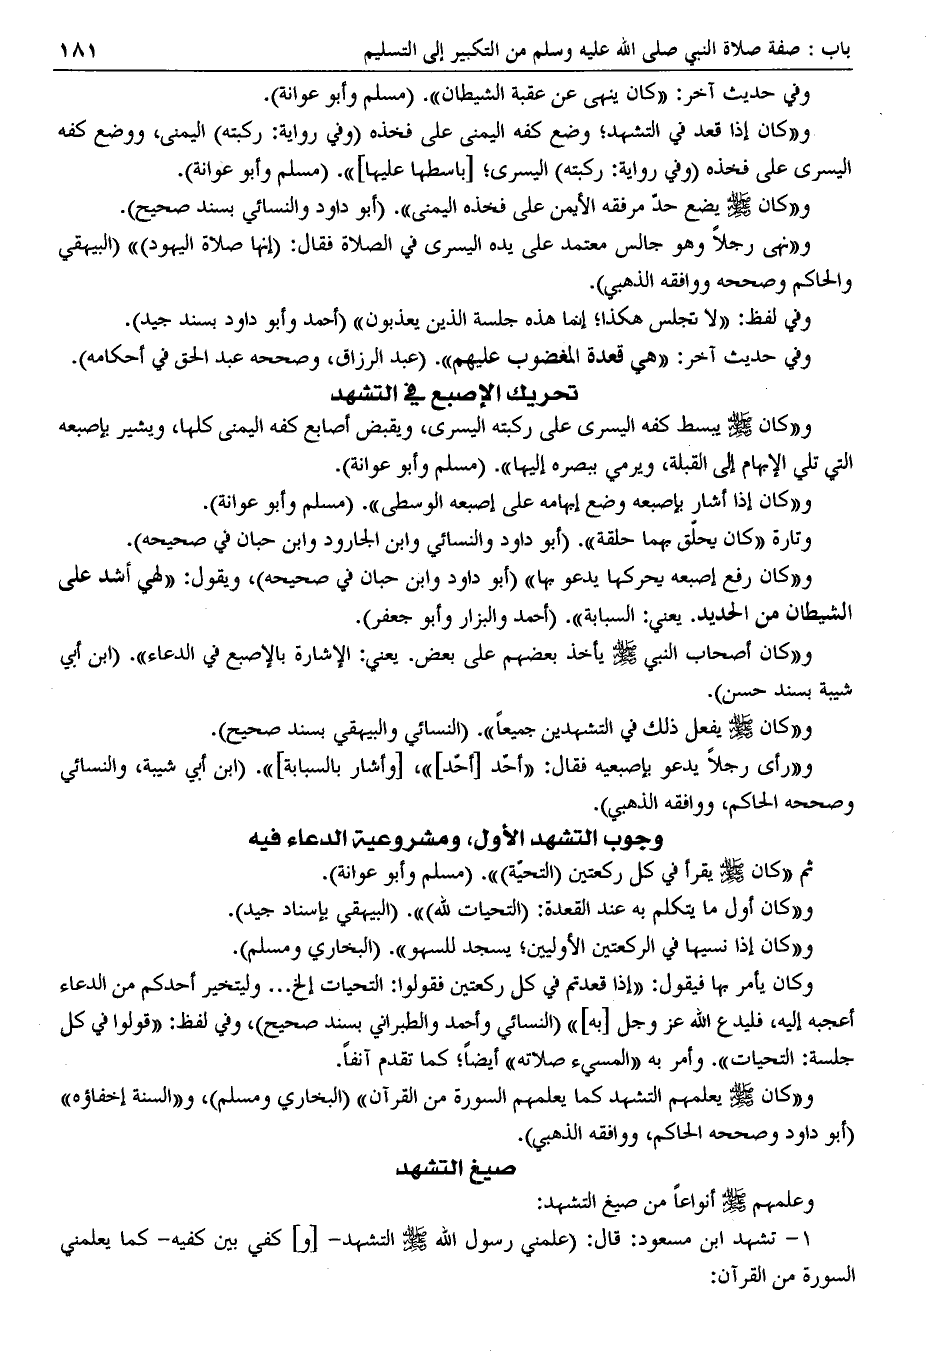 باب : صفة صلاة النبي صلى الله عليه وسلم من التكبير إلى التسليم ١٨١
وفي حديث آخر: «كان ينهى عن عقبة الشيطان». (مسلم وأبو عوانة).
و«كان إذا قعد في التشهد؛ وضع كفه اليمنى على فخذه (وفي رواية: ركبته) اليمنى، ووضع كفه
اليسرى على فخذه (وفي رواية: ركبته) اليسرى؛ [باسطها عليها]». (مسلم وأبو عوانة).
و«كان ﷺ يضع حدّ مرفقه الأيمن على فخذه اليمنى». (أبو داود والنسائي بسند صحيح).
و«نهى رجلاً وهو جالس معتمد على يده اليسرى في الصلاة فقال: (إنها صلاة اليهود)» (البيهقي
والحاكم وصححه ووافقه الذهبي).
وفي لفظ: «لا تجلس هكذا؛ إنما هذه جلسة الذين يعذبون» (أحمد وأبو داود بسند جيد).
وفي حديث آخر: «هي قعدة المغضوب عليهم». (عبد الرزاق، وصححه عبد الحق في أحكامه).
تحريك الإصبع في التشهد
و«كان ﷺ يبسط كفه اليسرى على ركبته اليسرى، ويقبض أصابع كفه اليمنى كلها، ويشير بإصبعه
التي تلي الإبهام إلى القبلة، ويرمي ببصره إليها». (مسلم وأبو عوانة).
و«كان إذا أشار بإصبعه وضع إبهامه على إصبعه الوسطى». (مسلم وأبو عوانة).
وتارة «كان يحلّق بهما حلقة». (أبو داود والنسائي وابن الجارود وابن حبان في صحيحه).
و«كان رفع إصبعه يحركها يدعو بها» (أبو داود وابن حبان في صحيحه)، ويقول: «لهي أشد على
الشيطان من الحديد. يعني: السبابة». (أحمد والبزار وأبو جعفر).
و«كان أصحاب النبي ﷺ يأخذ بعضهم على بعض. يعني: الإشارة بالإصبع في الدعاء». (ابن أبي
شيبة بسند حسن).
و«كان ﷺ يفعل ذلك في التشهدين جميعاً». (النسائي والبيهقي بسند صحيح).
و«رأى رجلاً يدعو بإصبعيه فقال: «أحّد [أحّد]»، [وأشار بالسبابة]». (ابن أبي شيبة، والنسائي
وصححه الحاكم، ووافقه الذهبي).
وجوب التشهد الأول، ومشروعية الدعاء فيه
ثم «كان ﷺ يقرأ في كل ركعتين (التحيّة)». (مسلم وأبو عوانة).
و«كان أول ما يتكلم به عند القعدة: (التحيات لله)». (البيهقي بإسناد جيد).
و«كان إذا نسيها في الركعتين الأوليين؛ يسجد للسهو». (البخاري ومسلم).
وكان يأمر بها فيقول: «إذا قعدتم في كل ركعتين فقولوا: التحيات إلخ... وليتخير أحدكم من الدعاء
أعجبه إليه، فليدع الله عز وجل [به]» (النسائي وأحمد والطبراني بسند صحيح)، وفي لفظ: «قولوا في كل
جلسة: التحيات». وأمر به «المسيء صلاته» أيضاً؛ كما تقدم آنفاً.
و«كان ﷺ يعلمهم التشهد كما يعلمهم السورة من القرآن» (البخاري ومسلم)، و«السنة إخفاؤه»
(أبو داود وصححه الحاكم، ووافقه الذهبي).
صيغ التشهد
وعلمهم ﷺ أنواعاً من صيغ التشهد:
١- تشهد ابن مسعود: قال: (علمني رسول الله ﷺ التشهد- [و] كفي بين كفيه- كما يعلمني
السورة من القرآن: